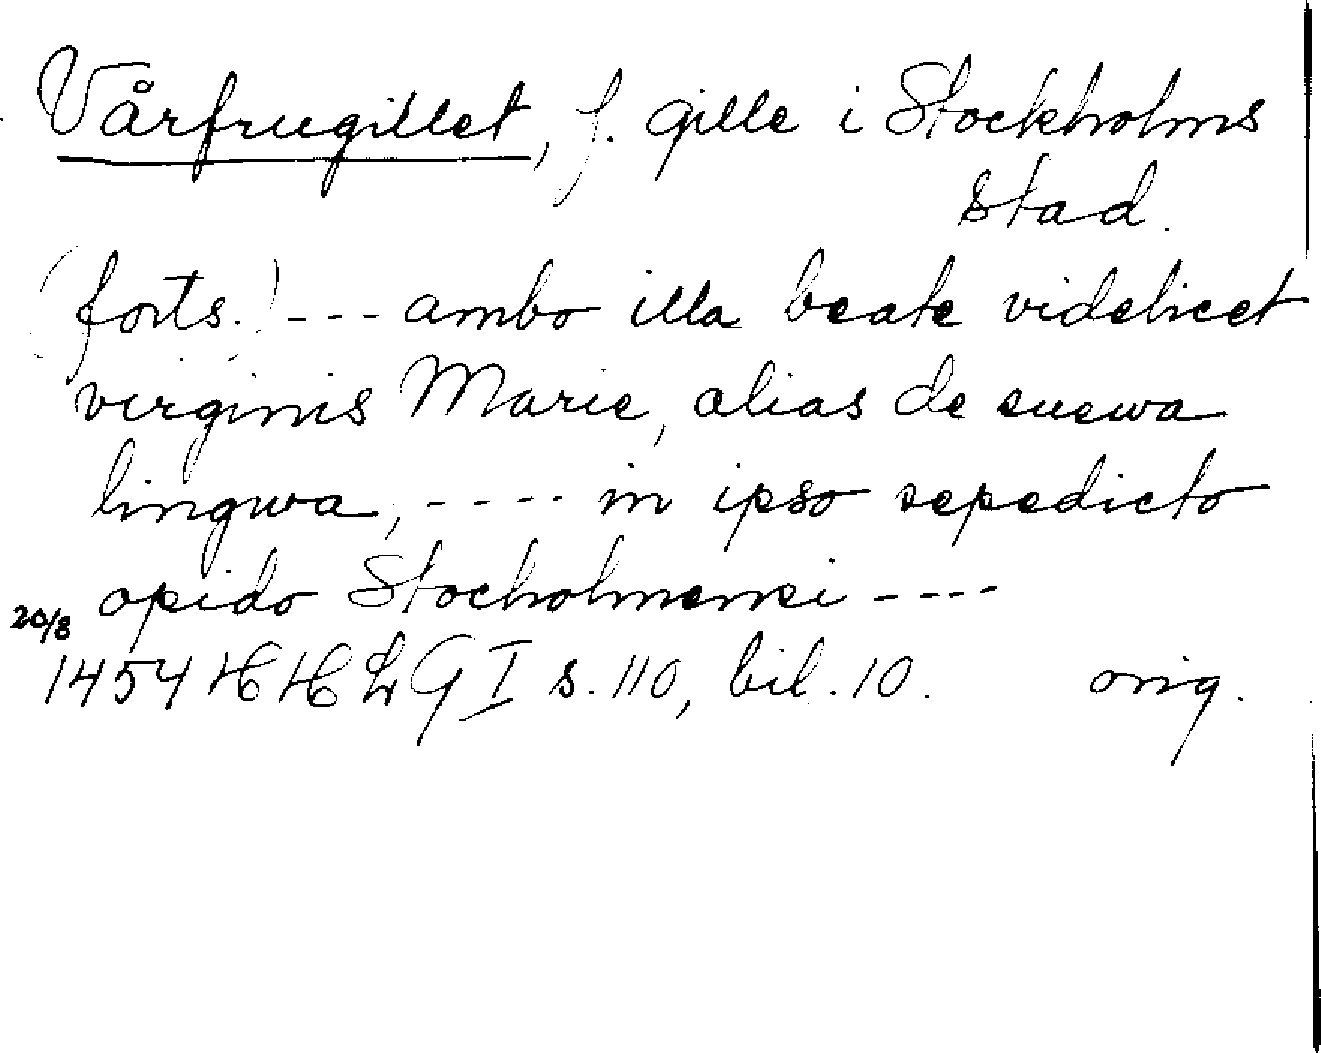 Vårfrugillet, f. gille i Stockholms
stad.
(forts.) --- ambo illa beate videlicet
virginis Marie, alias de suewa
lingwa, ---- in ipso sepedicto
opido Stocholmensi ----
20/8
1454 HHLG I s. 110, bil. 10. orig.